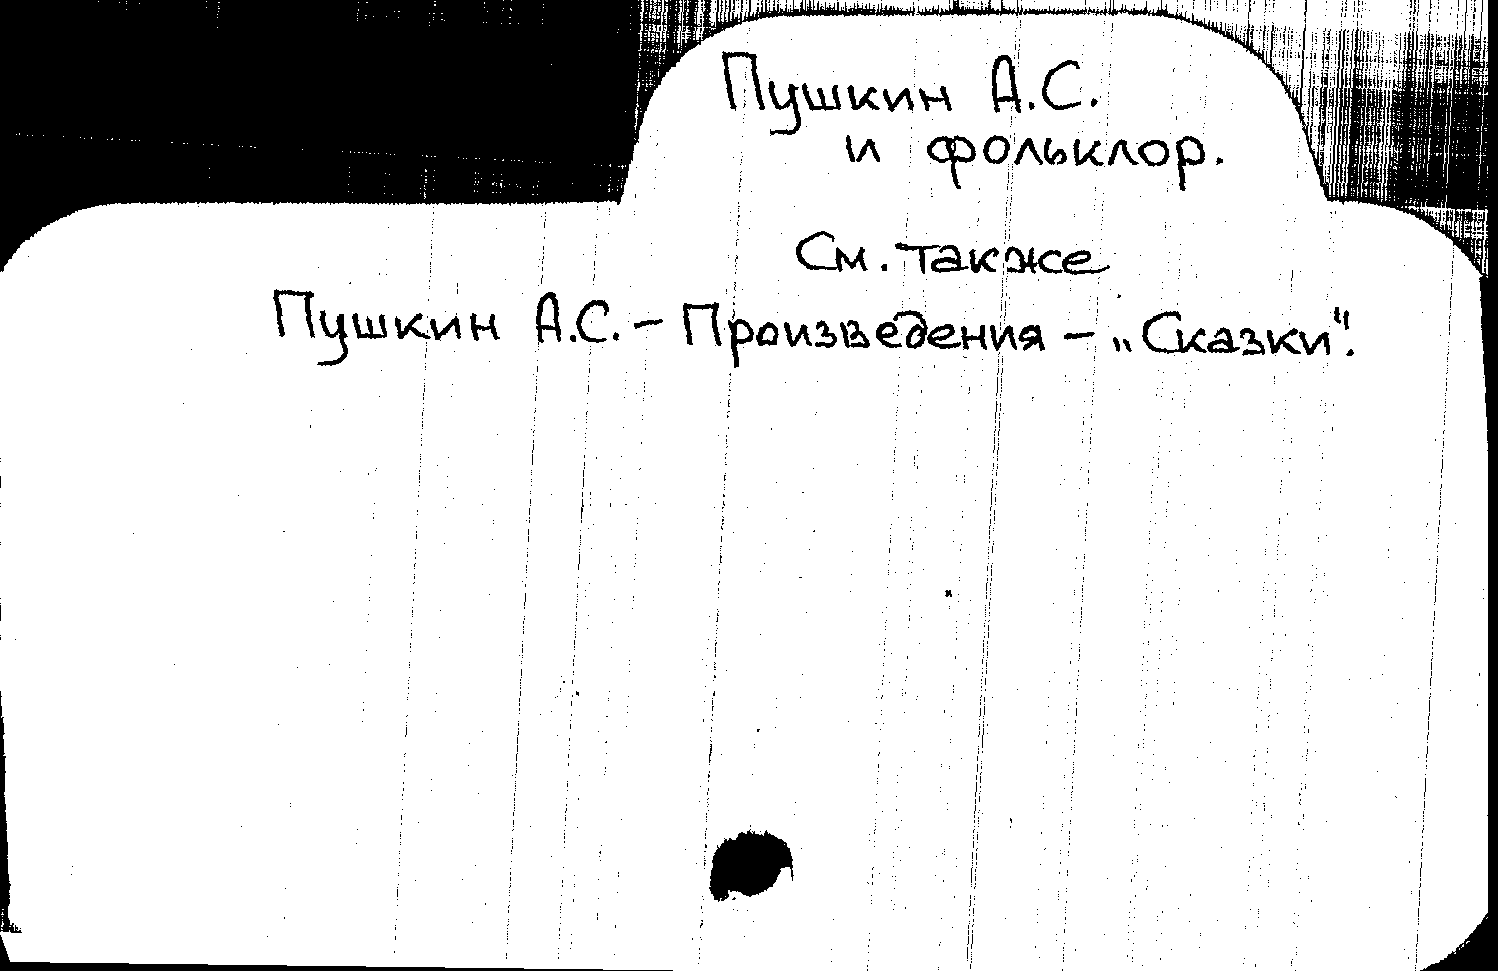 Пушкин А.С.
и фольклор.
См. также
Пушкин А.С. – Произведения – „Сказки“.